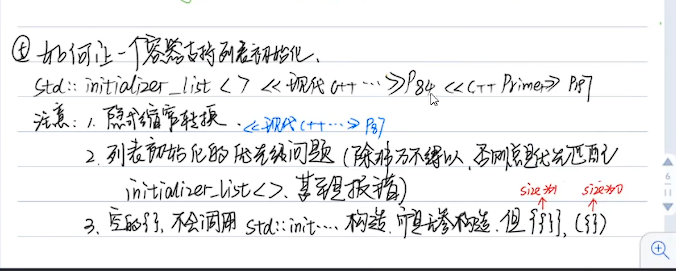 ⑦ 如何让一个容器支持列表初始化.
std:: initializer_list < > <<现代C++ ...>>P84 <<C++ Primer>> P197
注意: 1. 隐式缩窄转换. <<现代C++ ...>> P87
2. 列表初始化的优先级问题 (除非万不得以, 否则总是优先匹配
initializer_list<>. 甚至报错) size为1 size为0
3. 空的{}, 不会调用 std::init... 构造, 而是无参构造. 但{{}}, ({})
6
11